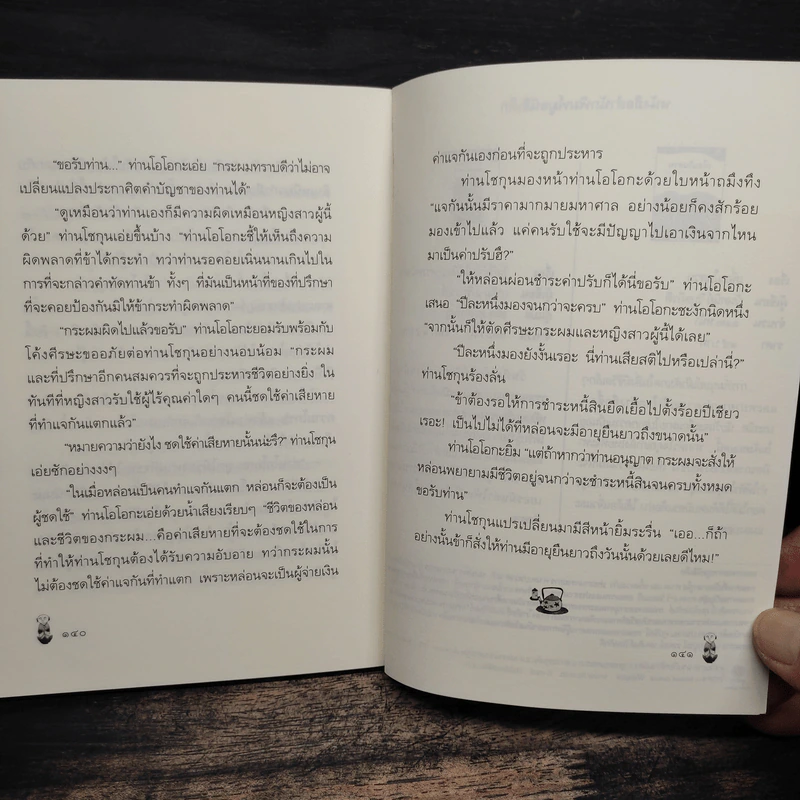 “ขอรับท่าน...” ท่านโอโอกะเอ่ย “กระผมทราบดีว่าไม่อาจ
เปลี่ยนแปลงประกาศิตคำบัญชาของท่านได้”
“ดูเหมือนว่าท่านเองก็มีความผิดเหมือนหญิงสาวผู้นี้
ด้วย” ท่านโชกุนเอ่ยขึ้นบ้าง “ท่านโอโอกะชี้ให้เห็นถึงความ
ผิดพลาดที่ข้าได้กระทำ ทว่าท่านรอคอยเนิ่นนานเกินไปใน
การที่จะกล่าวคำทัดทานข้า ทั้งๆ ที่มันเป็นหน้าที่ของที่ปรึกษา
ที่จะคอยป้องกันมิให้ข้ากระทำผิดพลาด”
“กระผมผิดไปแล้วขอรับ” ท่านโอโอกะยอมรับพร้อมกับ
โค้งศีรษะขออภัยต่อท่านโชกุนอย่างนอบน้อม “กระผม
และที่ปรึกษาอีกคนสมควรที่จะถูกประหารชีวิตอย่างยิ่ง ใน
ทันทีที่หญิงสาวรับใช้ผู้ไร้คุณค่าใดๆ คนนี้ชดใช้ค่าเสียหาย
ที่ทำแจกันแตกแล้ว”
“หมายความว่ายังไง ชดใช้ค่าเสียหายนั้นน่ะรึ?” ท่านโชกุน
เอ่ยซักอย่างงงๆ
“ในเมื่อหล่อนเป็นคนทำแจกันแตก หล่อนก็จะต้องเป็น
ผู้ชดใช้” ท่านโอโอกะเอ่ยด้วยน้ำเสียงเรียบๆ “ชีวิตของหล่อน
และชีวิตของกระผม...คือค่าเสียหายที่จะต้องชดใช้ในการ
ที่ทำให้ท่านโชกุนต้องได้รับความอับอาย ทว่ากระผมนั้น
ไม่ต้องชดใช้ค่าแจกันที่ทำแตก เพราะหล่อนจะเป็นผู้จ่ายเงิน
๑๔๐
ค่าแจกันเองก่อนที่จะถูกประหาร
ท่านโชกุนมองหน้าท่านโอโอกะด้วยใบหน้าถมึงทึง
“แจกันนั้นมีราคามากมายมหาศาล อย่างน้อยก็คงสักร้อย
มองเข้าไปแล้ว แค่คนรับใช้จะมีปัญญาไปเอาเงินจากไหน
มาเป็นค่าปรับฮึ?”
“ให้หล่อนผ่อนชำระค่าปรับก็ได้นี่ขอรับ” ท่านโอโอกะ
เสนอ “ปีละหนึ่งมองจนกว่าจะครบ” ท่านโอโอกะชะงักนิดหนึ่ง
“จากนั้นก็ให้ตัดศีรษะกระผมและหญิงสาวผู้นี้ได้เลย”
“ปีละหนึ่งมองยังงั้นเรอะ นี่ท่านเสียสติไปหรือเปล่านี่?”
ท่านโชกุนร้องลั่น
“ข้าต้องรอให้การชำระหนี้สินยืดเยื้อไปตั้งร้อยปีเชียว
เรอะ! เป็นไปไม่ได้ที่หล่อนจะมีอายุยืนยาวถึงขนาดนั้น”
ท่านโอโอกะยิ้ม “แต่ถ้าหากว่าท่านอนุญาต กระผมจะสั่งให้
หล่อนพยายามมีชีวิตอยู่จนกว่าจะชำระหนี้สินจนครบทั้งหมด
ขอรับท่าน”
ท่านโชกุนแปรเปลี่ยนมามีสีหน้ายิ้มระรื่น “เออ...ก็ถ้า
อย่างนั้นข้าก็สั่งให้ท่านมีอายุยืนยาวถึงวันนั้นด้วยเลยดีไหม!”
๑๔๑